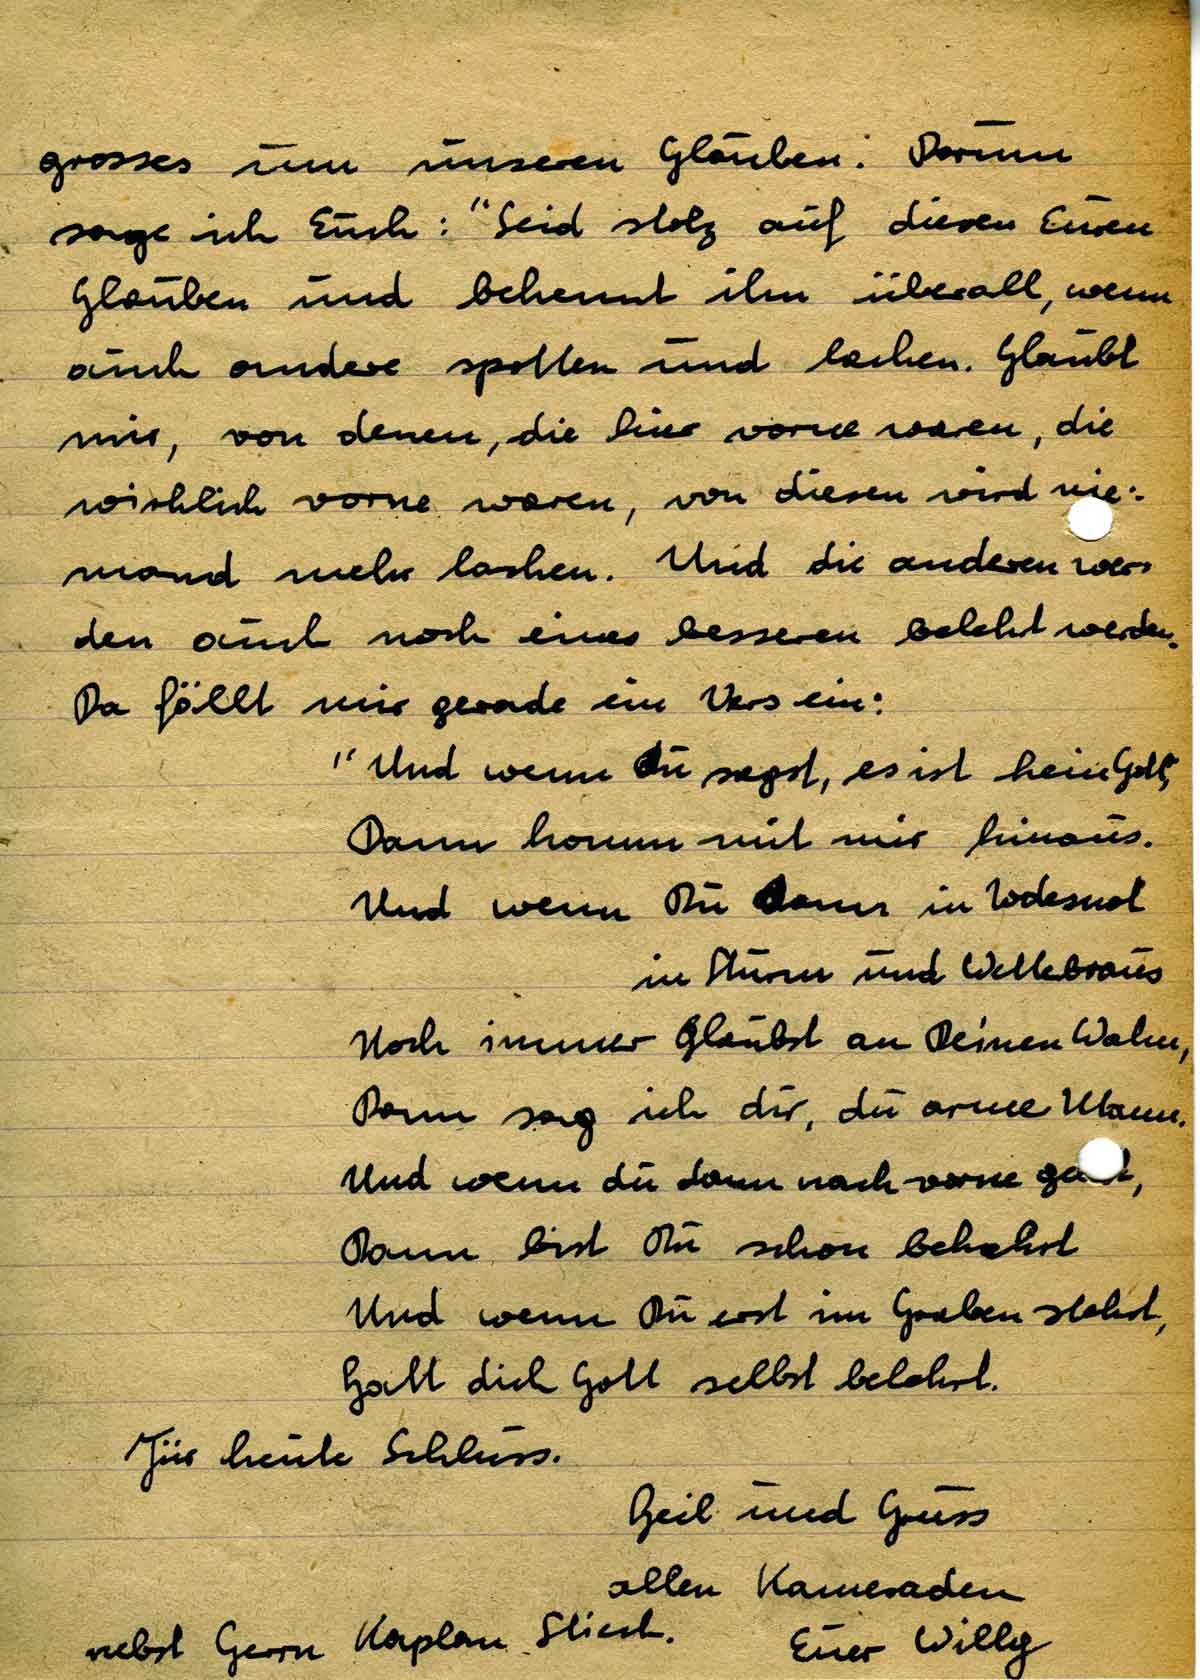 grosses um unseren Glauben. Darum
sage ich Euch: "Seid stolz auf diesen Euren
Glauben und bekennt ihn überall, wenn
auch andere spotten und lachen. Glaubt
mir, von denen, die hier vorne waren, die
wirklich vorne waren, von diesen wird nie-
mand mehr lachen. Und die anderen wer-
den auch noch eines besseren belehrt werden.
Da fällt mir gerade ein Vers ein:
"Und wenn Du sagst, es ist kein Gott,
Dann komm mit mir hinaus.
Und wenn Du dann in Todesnot
in Sturm und Wellebraus
Noch immer Glaubst an Deinen Wahn,
Dann sag ich dir, du arme Mann.
Und wenn du dann nach vorne
Dann bist Du schon bekehrt
Und wenn Du erst im Graben stehst,
Hatt dich Gott selbst belehrt.
Für heute Schluss.
Heil und Gruss
allen Kameraden
nebst Herrn Kaplan
Euer Willy